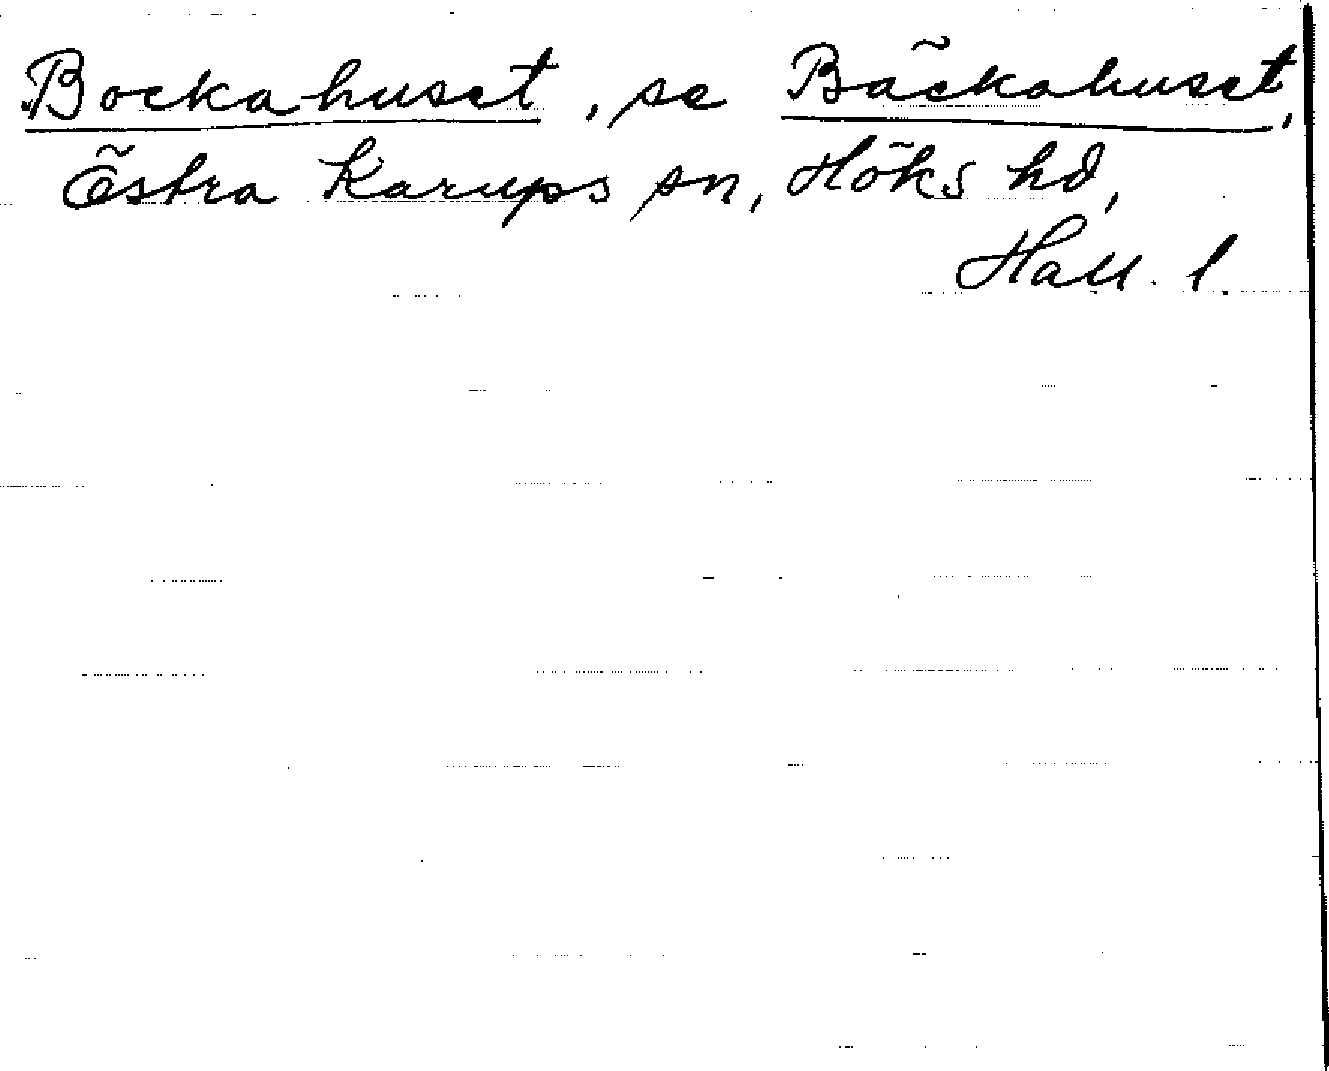 Bockahuset, se Bäckahuset,
Östra Karups sn, Höks hd,
Hall. l.